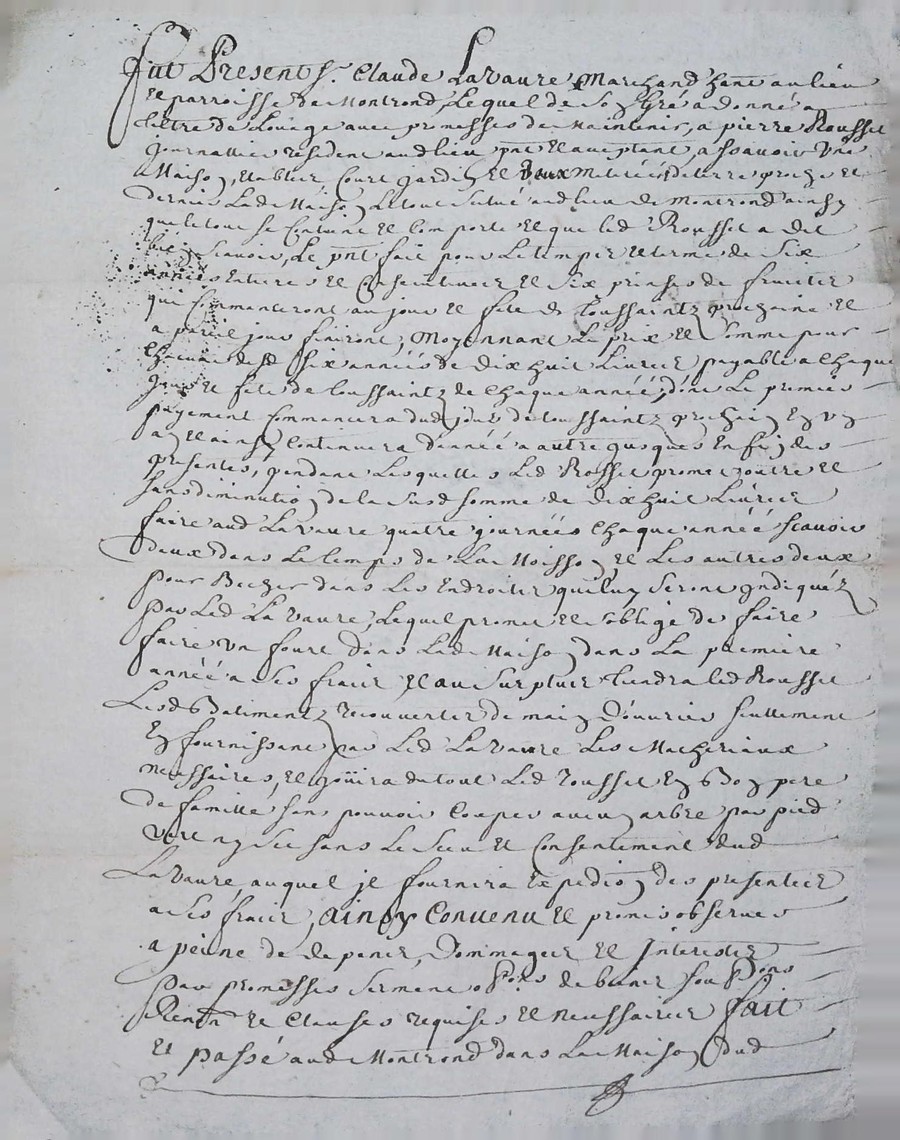 fut Present Sr. Claude Lavaure Marchand hant au lieu
et parroisse de Montrond, Lequel de Son Gré a donné a
tiltre de Louage avec promesses de Maintenir, a pierre Rousset
Journallier resident aud lieu pnt et acceptant, a scavoir Une
Maison, Etableri Court Jardin et deux Meterées de terre proche et
dernier Lad Maison, Le tout Situé aud lieu de Montrond ainsy
que le tout se Contient et Comporte et que led Rousset a dit
bien Scavoir, Le pnt fait pour Le temps et terme de Six
années Entieres et Consecutives et Six prinses de fruicts
qui Commanceront au jour et fete de Toussaintz prochaine et
a pareil jour finiront, Moyennant Le prix et Somme pour
Chacune desd Six années de dix huit Livres, payable a Chaque
Jour et fete de toussaintz de Chaque année, donc Le premier
payement Commancera dud jour de toussaintz prochain En Un
an, et ainsy Continuera d'année a autre jusques En fin des
presentes, pendant Lesquelles Led Rousset promet outre et
Sans diminution de la Susd somme de dix huit Livres
faire aud Lavaure quatre journées Chaque année scavoir
deux dans Le temps de La Moisson et Les autres deux
pour Becher dans Les Endroits quil luy Seront Indiquéz
par Led Lavaure, Lequel promet et s'oblige de faire
faire Un fourt dans Lad Maison dans La premiere
année a Ses fraix et au Surplus tiendra led Rousset
Lesd Batimentz recouverts de main d'ouvrier seullement
En fournissant par Led Lavaure Les Matheriaux
necessaires, et joüira du tout Led rousset En Bon pere
de famille sans pouvoir Couper aucun arbre par pied
vert ny Sec sans Le Sceu et Consentement dud
Lavaure, auquel il fournira Expedion des presentes
a Ses fraix, ainsy Convenu et promis observer
a peine de depens, Dommages et Interests
par promesses serment obons de biens soubons
Renon et Clauses requises et necessaires fait
Et passé aud Montrond dans La Maison dud